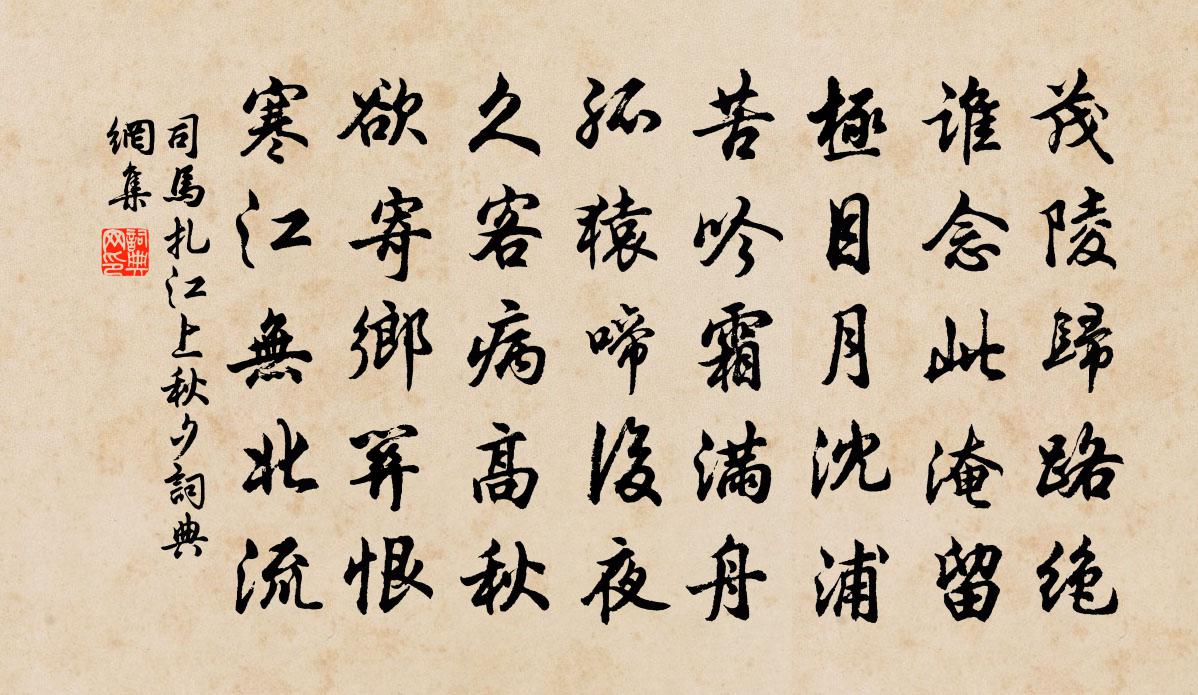 茂陵歸路絕
誰念此淹留
極目月沈浦
苦吟霜滿舟
孤猿啼後夜
久客病高秋
欲寄鄉關恨
寒江無北流
司馬扎江上秋夕詞典
網集
詞典网印